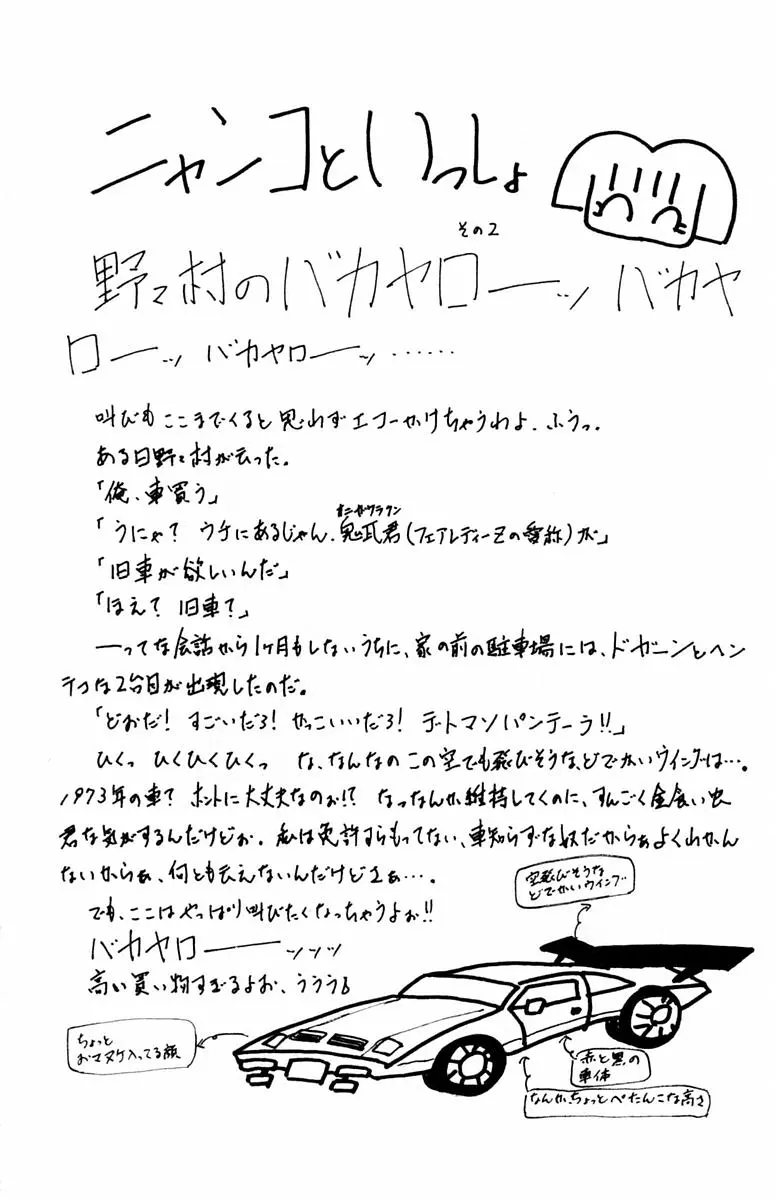 ニャンコといっしょ
その2
野々村のバカヤローーッ バカヤ
ローーッ バカヤローーッ……
叫びもここまでくると思わずエコーかけちゃうわよ。ふうっ。
ある日野々村が云った。
「俺、車買う」
「うにゃ? ウケにあるじゃん。鬼瓦君(フェアレディーZの愛称)が」
「旧車が欲しいんだ」
「ほえ? 旧車?」
ーってな会話から1ヶ月もしないうちに、家の前の駐車場には、ドガーンとヘン
テコな2台目が出現したのだ。
「どおだ! すごいだろ! かっこいいだろ! デトマソパンテーラ!!」
ひくっ ひくひくひくっ な、なんなの この空でも飛びそうな、どでかいウイングは…。
1973年の車? ホントに大丈夫なのお!? なっなんか維持してくのに、すんごく金食い虫
君な気がするんだけどお。私は免許すらもってない、車知らずな奴だからぁよくわかん
ないからぁ、何とも云えないんだけどさぁ…。
でも、ここはやっぱり叫びたくなっちゃうよぉ!!
バカヤローーーッッッ
高い買い物すぎるよお、ううう
空飛びそうな
どでかいウイング
ちょっと
おマヌケ入ってる顔
赤と黒の
車体
なんか、ちょっとペたんこな高さ